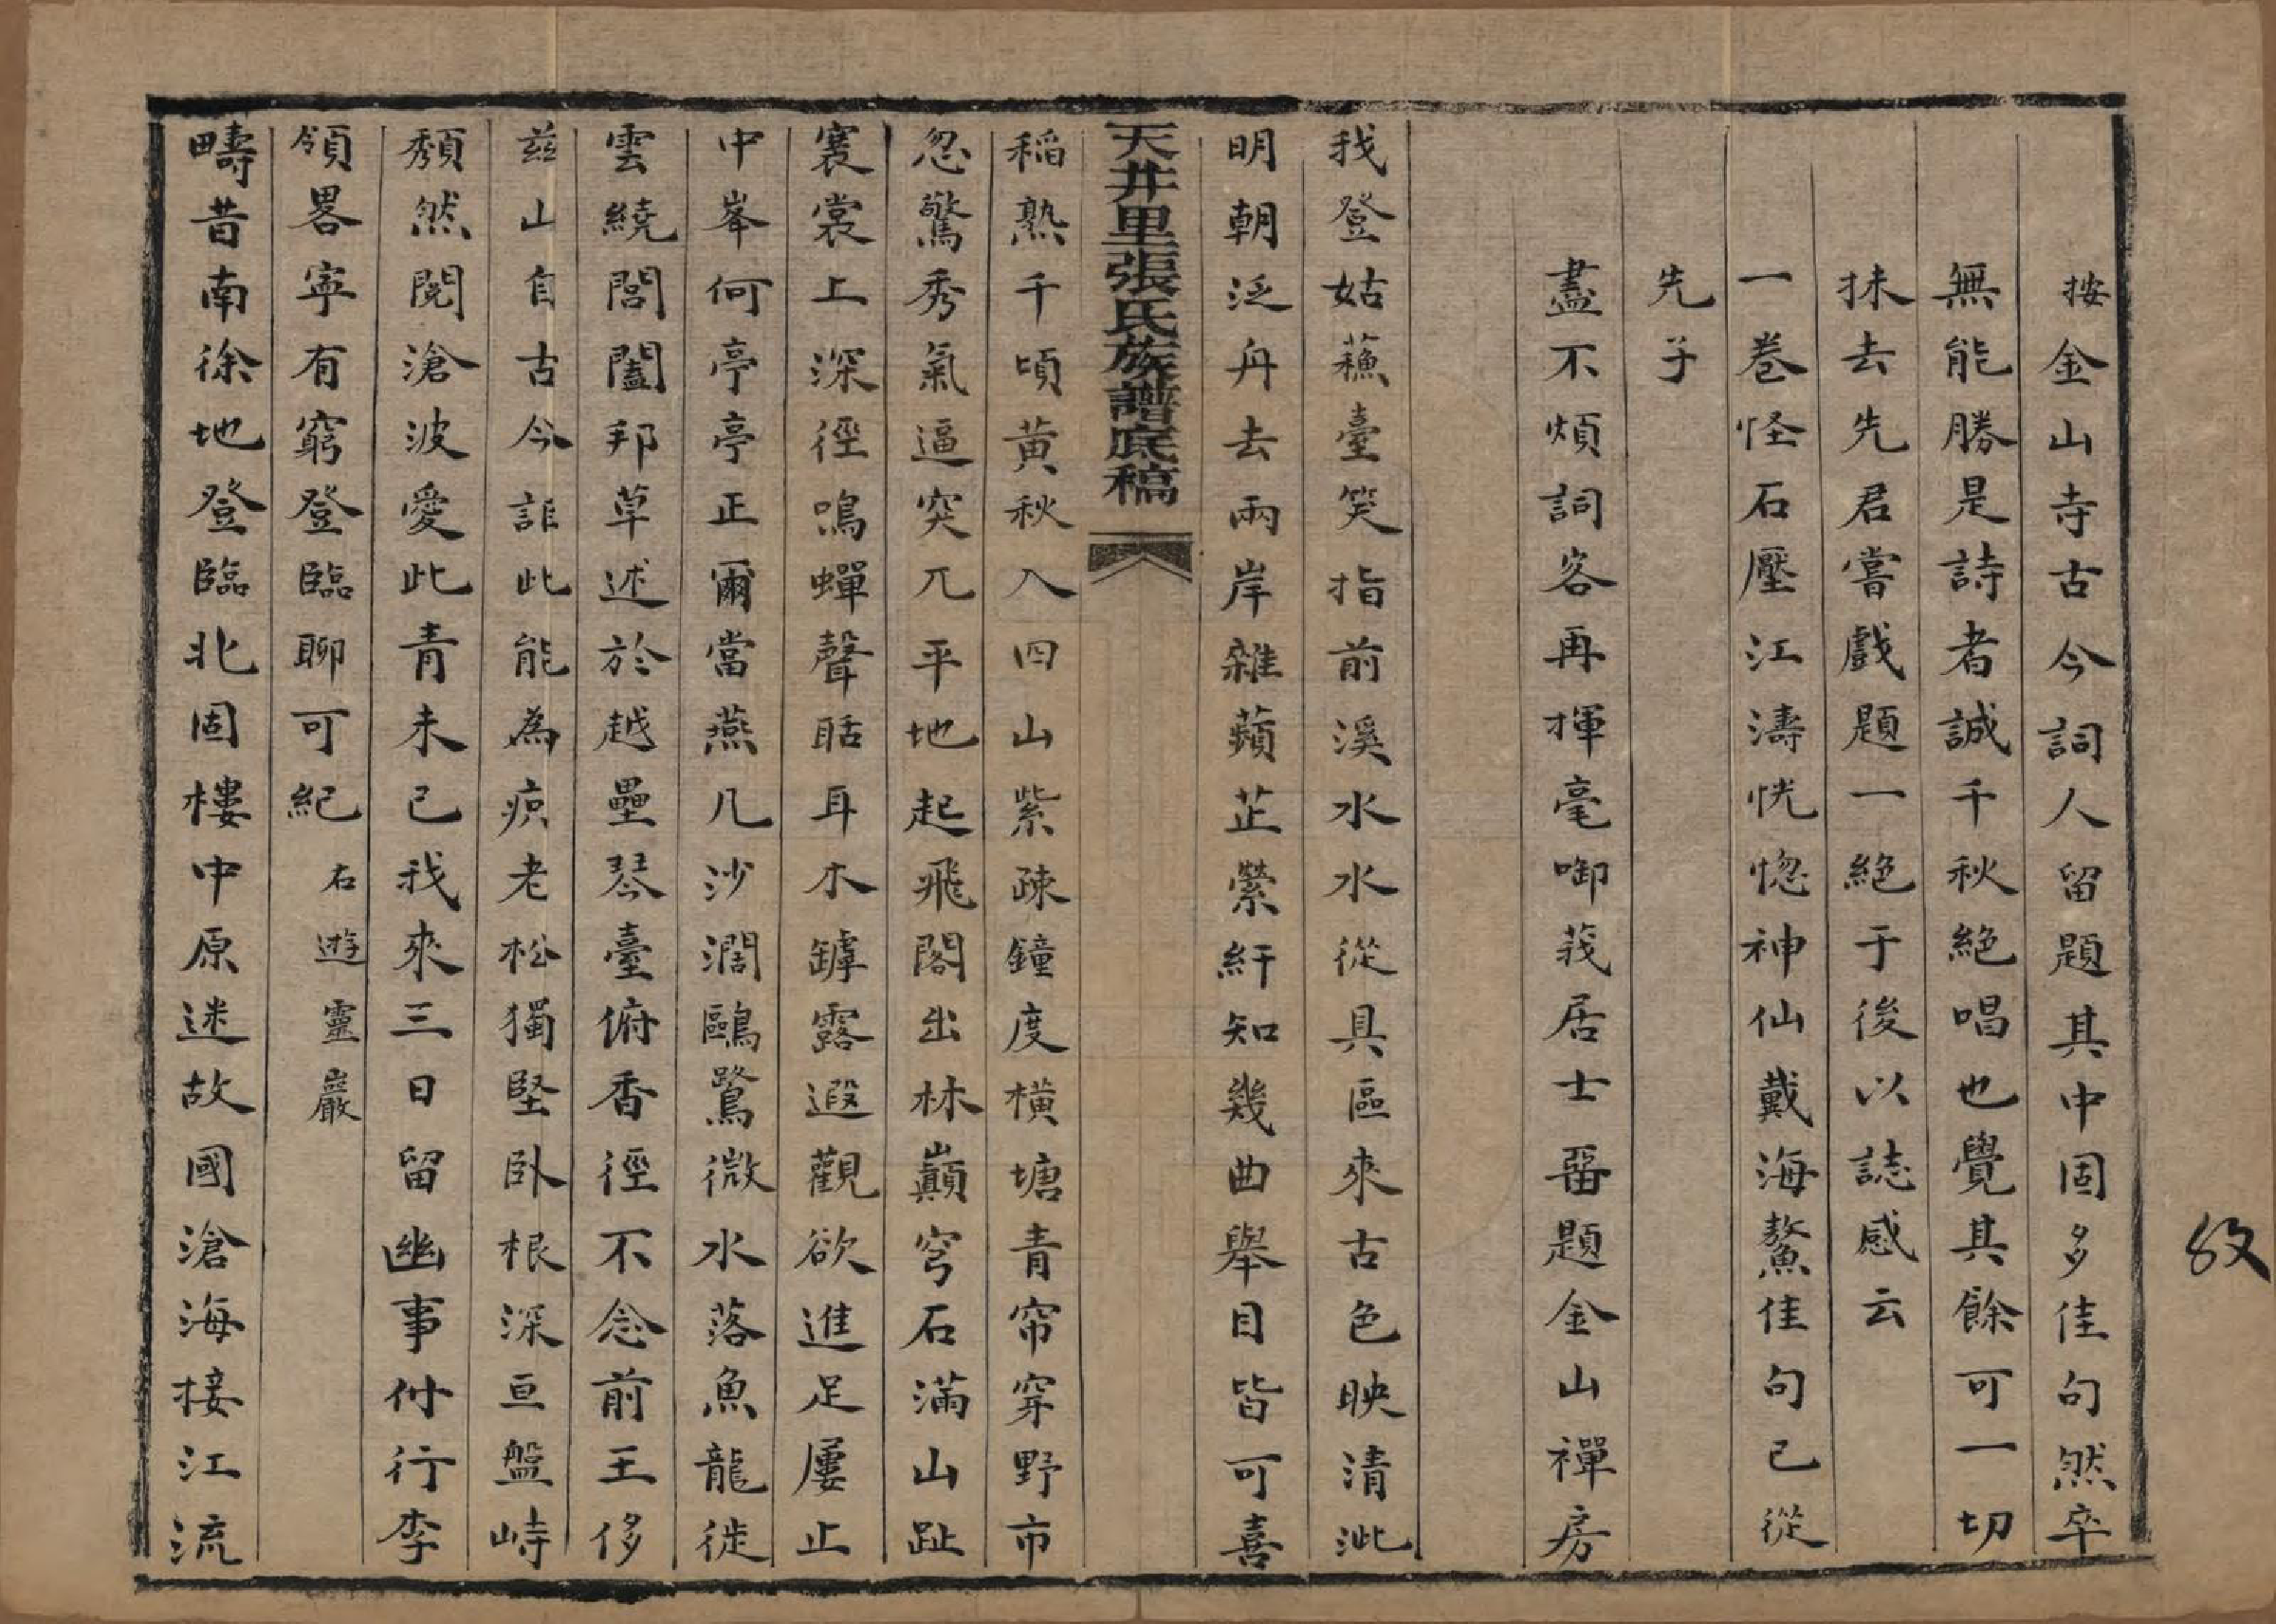 按金山寺古今詞人留題其中固多佳句然卒
無能勝是詩者誠千秋絕唱也覺其餘可一切
抹去先君嘗戲題一絕于後以誌感云
一卷怪石壓江濤恍惚神仙戴海鰲佳句已從
先子
盡不煩詞客再揮毫啣莪居士畱題金山禪房
我登姑蘓臺笑指前溪水水從具區來古色映清泚
明朝泛舟去兩岸雜蘋芷縈紆知幾曲舉目皆可喜
天井里張氏族譜底稿
稲熟千頃黄秋入四山紫疎鐘度橫塘青帘穿野市
忽驚秀氣逼突兀平地起飛閣出林巔穹石滿山趾
褰裳上深徑鳴蟬聲聒耳木罅露遐觀欲進足屢止
中峯何亭亭正爾當燕几沙濶鷗鷺微水落魚龍徙
雲繞閭闔邦草述於越壘琴臺俯香徑不念前王侈
茲山自古今詎此能為疻老松獨堅卧根深亘盤峙
頹然閱滄波愛此青未已我來三日留幽事付行李
領畧寧有窮登臨聊可紀 右遊靈巖
疇昔南徐地登臨北固樓中原迷故國滄海接江流